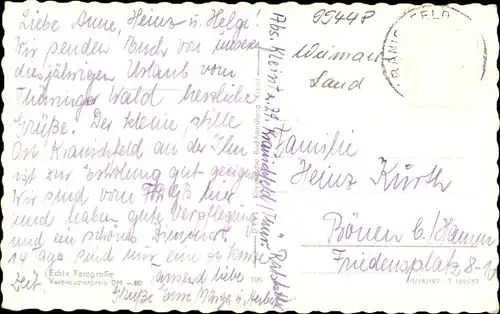 Liebe Anne, Heinz u. Helge!
Wir senden Euch von unserem
diesjährigen Urlaub vom
Thüringer Wald herzliche
Grüße. Der kleine, stille
Ort Kranichfeld an der Ilm
ist zur Erholung gut geeignet
Wir sind vom FDGB hier
und haben gute Verpflegung
und ein schönes Zimmer.
14 Tage sind nur eine zu kurze
Zeit.
Tausend liebe
Grüße Eure
Echte Fotografie
Verbraucherpreis DM
Abs. Kleint z. Zt. Kranichfeld Thür.
99448
Weimar
Land
Familie
Heinz Kürth
Bönen b./Hamm
Friedensplatz 8